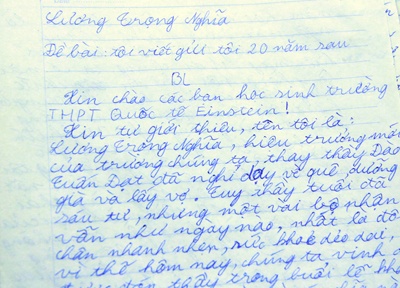 Lương Trọng Nghĩa
Đề bài: tôi viết gửi tôi 20 năm sau
BL
Xin chào các bạn học sinh trường
THPT Quốc tế Einstein!
Xin tự giới thiệu, tên tôi là:
Lương Trọng Nghĩa, hiệu trưởng mới
của trường chúng ta, thay thầy Đào
Tuấn Đạt đã nghỉ dạy về quê, dưỡng
già và lấy vợ. Tuy thầy tuổi đã
sáu tư, nhưng một vài bộ phận
vẫn như ngày nào, nhất là đôi
chân nhanh nhẹn, sức khoẻ dẻo dai,
vì thế hôm nay, chúng ta vinh
đón thầy trong buổi lễ